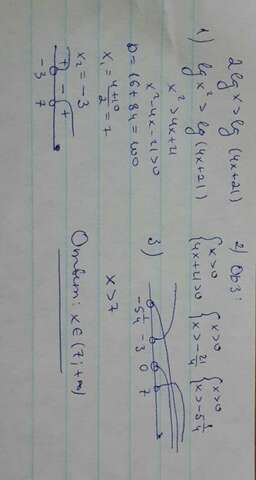 2lg x > lg (4x+21)
1) lg x² > lg (4x+21)
x² > 4x+21
x² - 4x - 21 > 0
D = 16 + 84 = 100
x₁ = (4+10)/2 = 7
x₂ = -3
+ - +
-3 7
2) ОДЗ:
{ x>0 { x>0 { x>0
4x+21>0 x > -21/4 x > -5 1/4
3)
-5 1/4 -3 0 7
x > 7
Ответ: x ∈ (7; +∞)